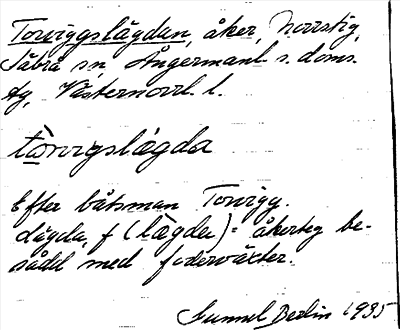 Torviggslägdan, åker, Norrstig,
Säbrå sn, Ångermanl. s. doms.
tg, Västernorrl. l.
tòrvigslägda
Efter båtsman Torvigg.
Lägda, f (lägda) = åkerteg be-
sådd med foderväxter.
Gunnel Berlin 1935